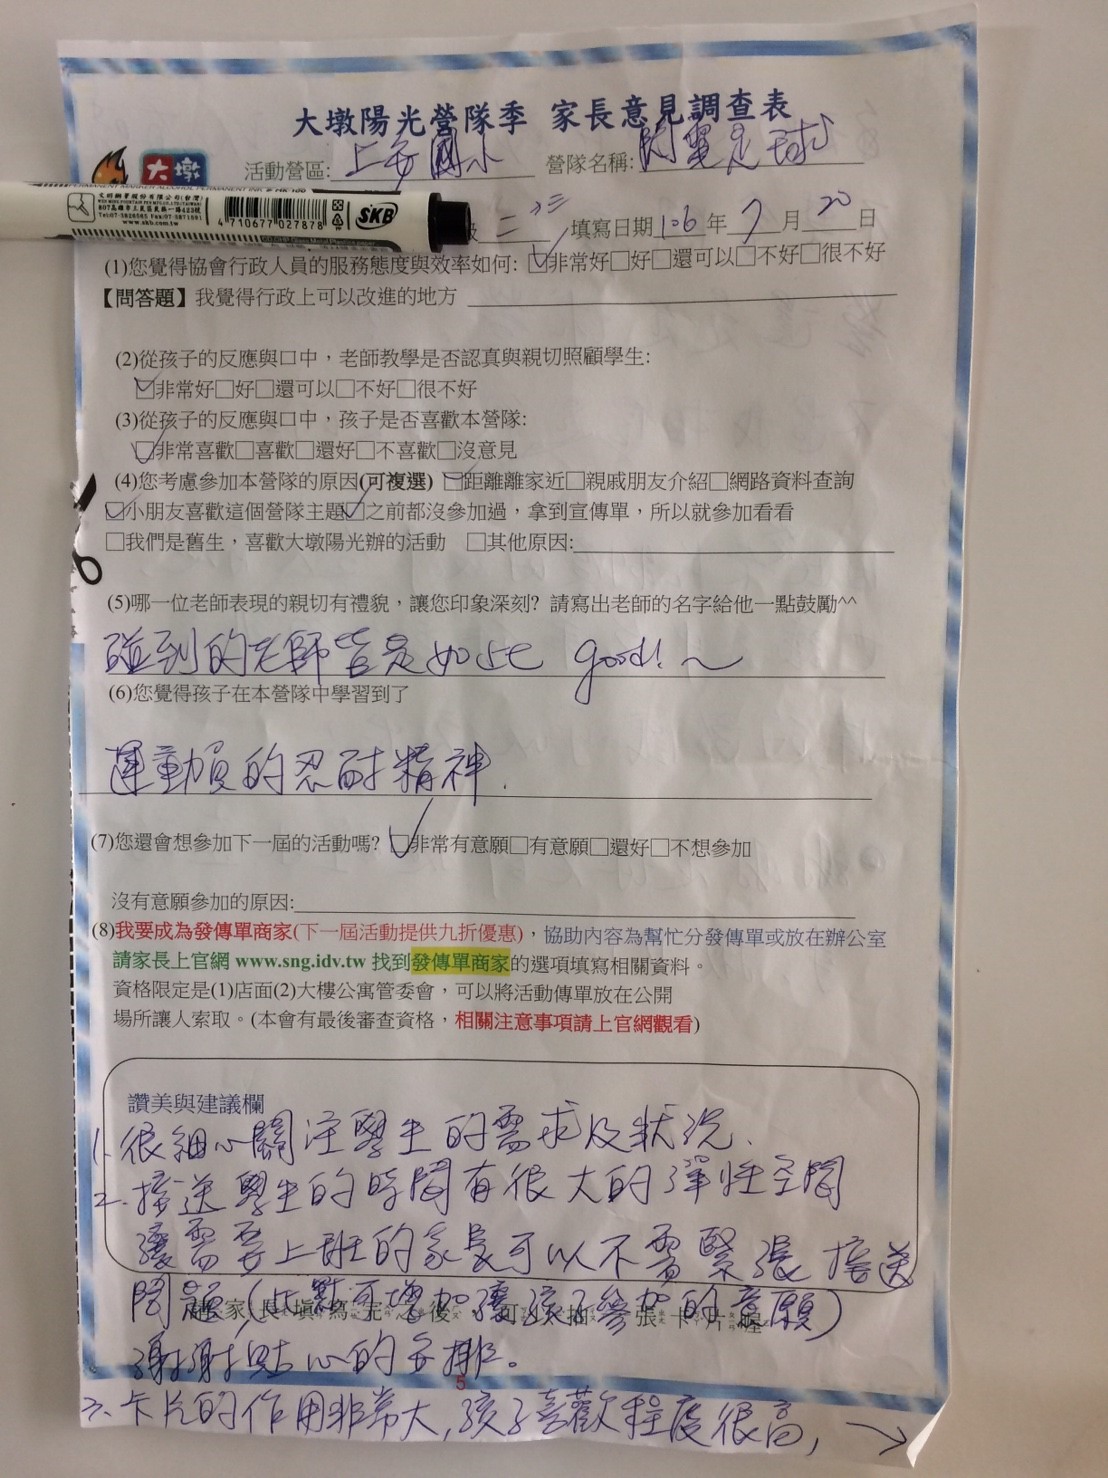 大墩陽光營隊季 家長意見調查表
大墩
活動營區:上安國小 營隊名稱:閃電足球
SKB
4 710677 027878
www.skb.com.tw
級 二、三 填寫日期106年7月20日
(1)您覺得協會行政人員的服務態度與效率如何: □非常好□好□還可以□不好□很不好
【問答題】我覺得行政上可以改進的地方
(2)從孩子的反應與口中，老師教學是否認真與親切照顧學生:
□非常好□好□還可以□不好□很不好
(3)從孩子的反應與口中，孩子是否喜歡本營隊:
□非常喜歡□喜歡□還好□不喜歡□沒意見
(4)您考慮參加本營隊的原因(可複選) □距離離家近□親戚朋友介紹□網路資料查詢
□小朋友喜歡這個營隊主題□之前都沒參加過，拿到宣傳單，所以就參加看看
□我們是舊生，喜歡大墩陽光辦的活動 □其他原因:
(5)哪一位老師表現的親切有禮貌，讓您印象深刻? 請寫出老師的名字給他一點鼓勵^^
碰到的老師皆是如此 good!~
(6)您覺得孩子在本營隊中學習到了
運動員的忍耐精神.
(7)您還會想參加下一屆的活動嗎? □非常有意願□有意願□還好□不想參加
沒有意願參加的原因:
(8)我要成為發傳單商家(下一屆活動提供九折優惠)，協助內容為幫忙分發傳單或放在辦公室
請家長上官網 www.sng.idv.tw 找到發傳單商家的選項填寫相關資料。
資格限定是(1)店面(2)大樓公寓管委會，可以將活動傳單放在公開
場所讓人索取。(本會有最後審查資格，相關注意事項請上官網觀看)
讚美與建議欄
1. 很細心關注學生的需求及狀況.
2. 接送學生的時間有很大的彈性空間
讓需要上班的家長可以不需緊張接送
問題(此點可增加讓孩子參加的意願)
家長填寫完之後 可以抽 張卡片喔
謝謝貼心的安排。
5
3. 卡片的作用非常大,孩子喜歡程度很高, →